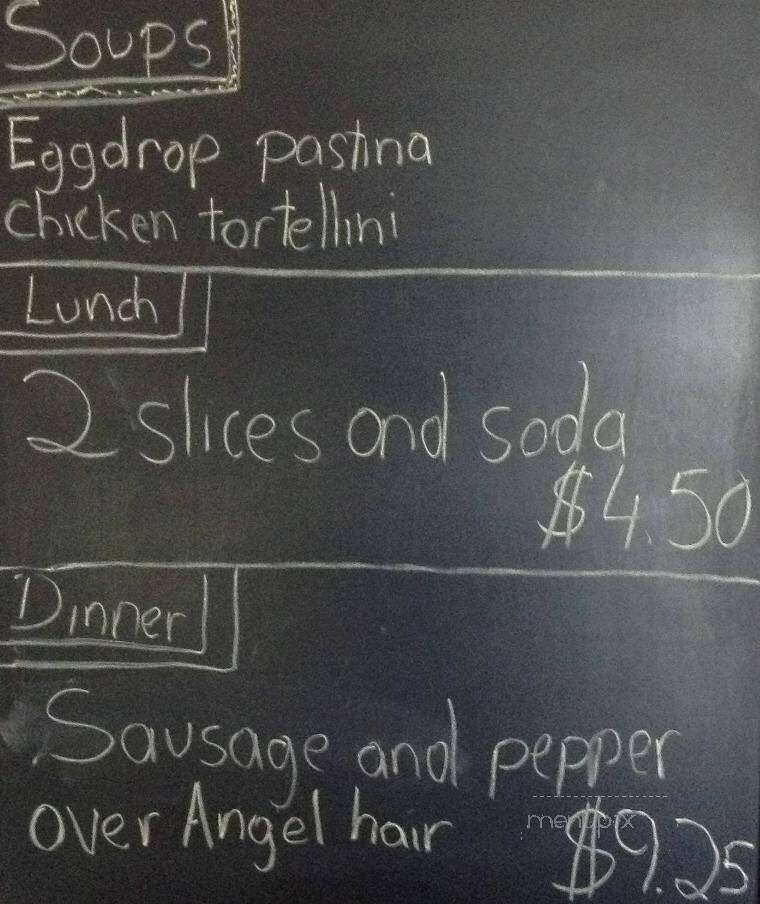 Soups
Eggdrop pastina
chicken tortellini
Lunch
2 slices and soda
$4.50
Dinner
Sausage and pepper
over Angel hair
menupix
$9.25